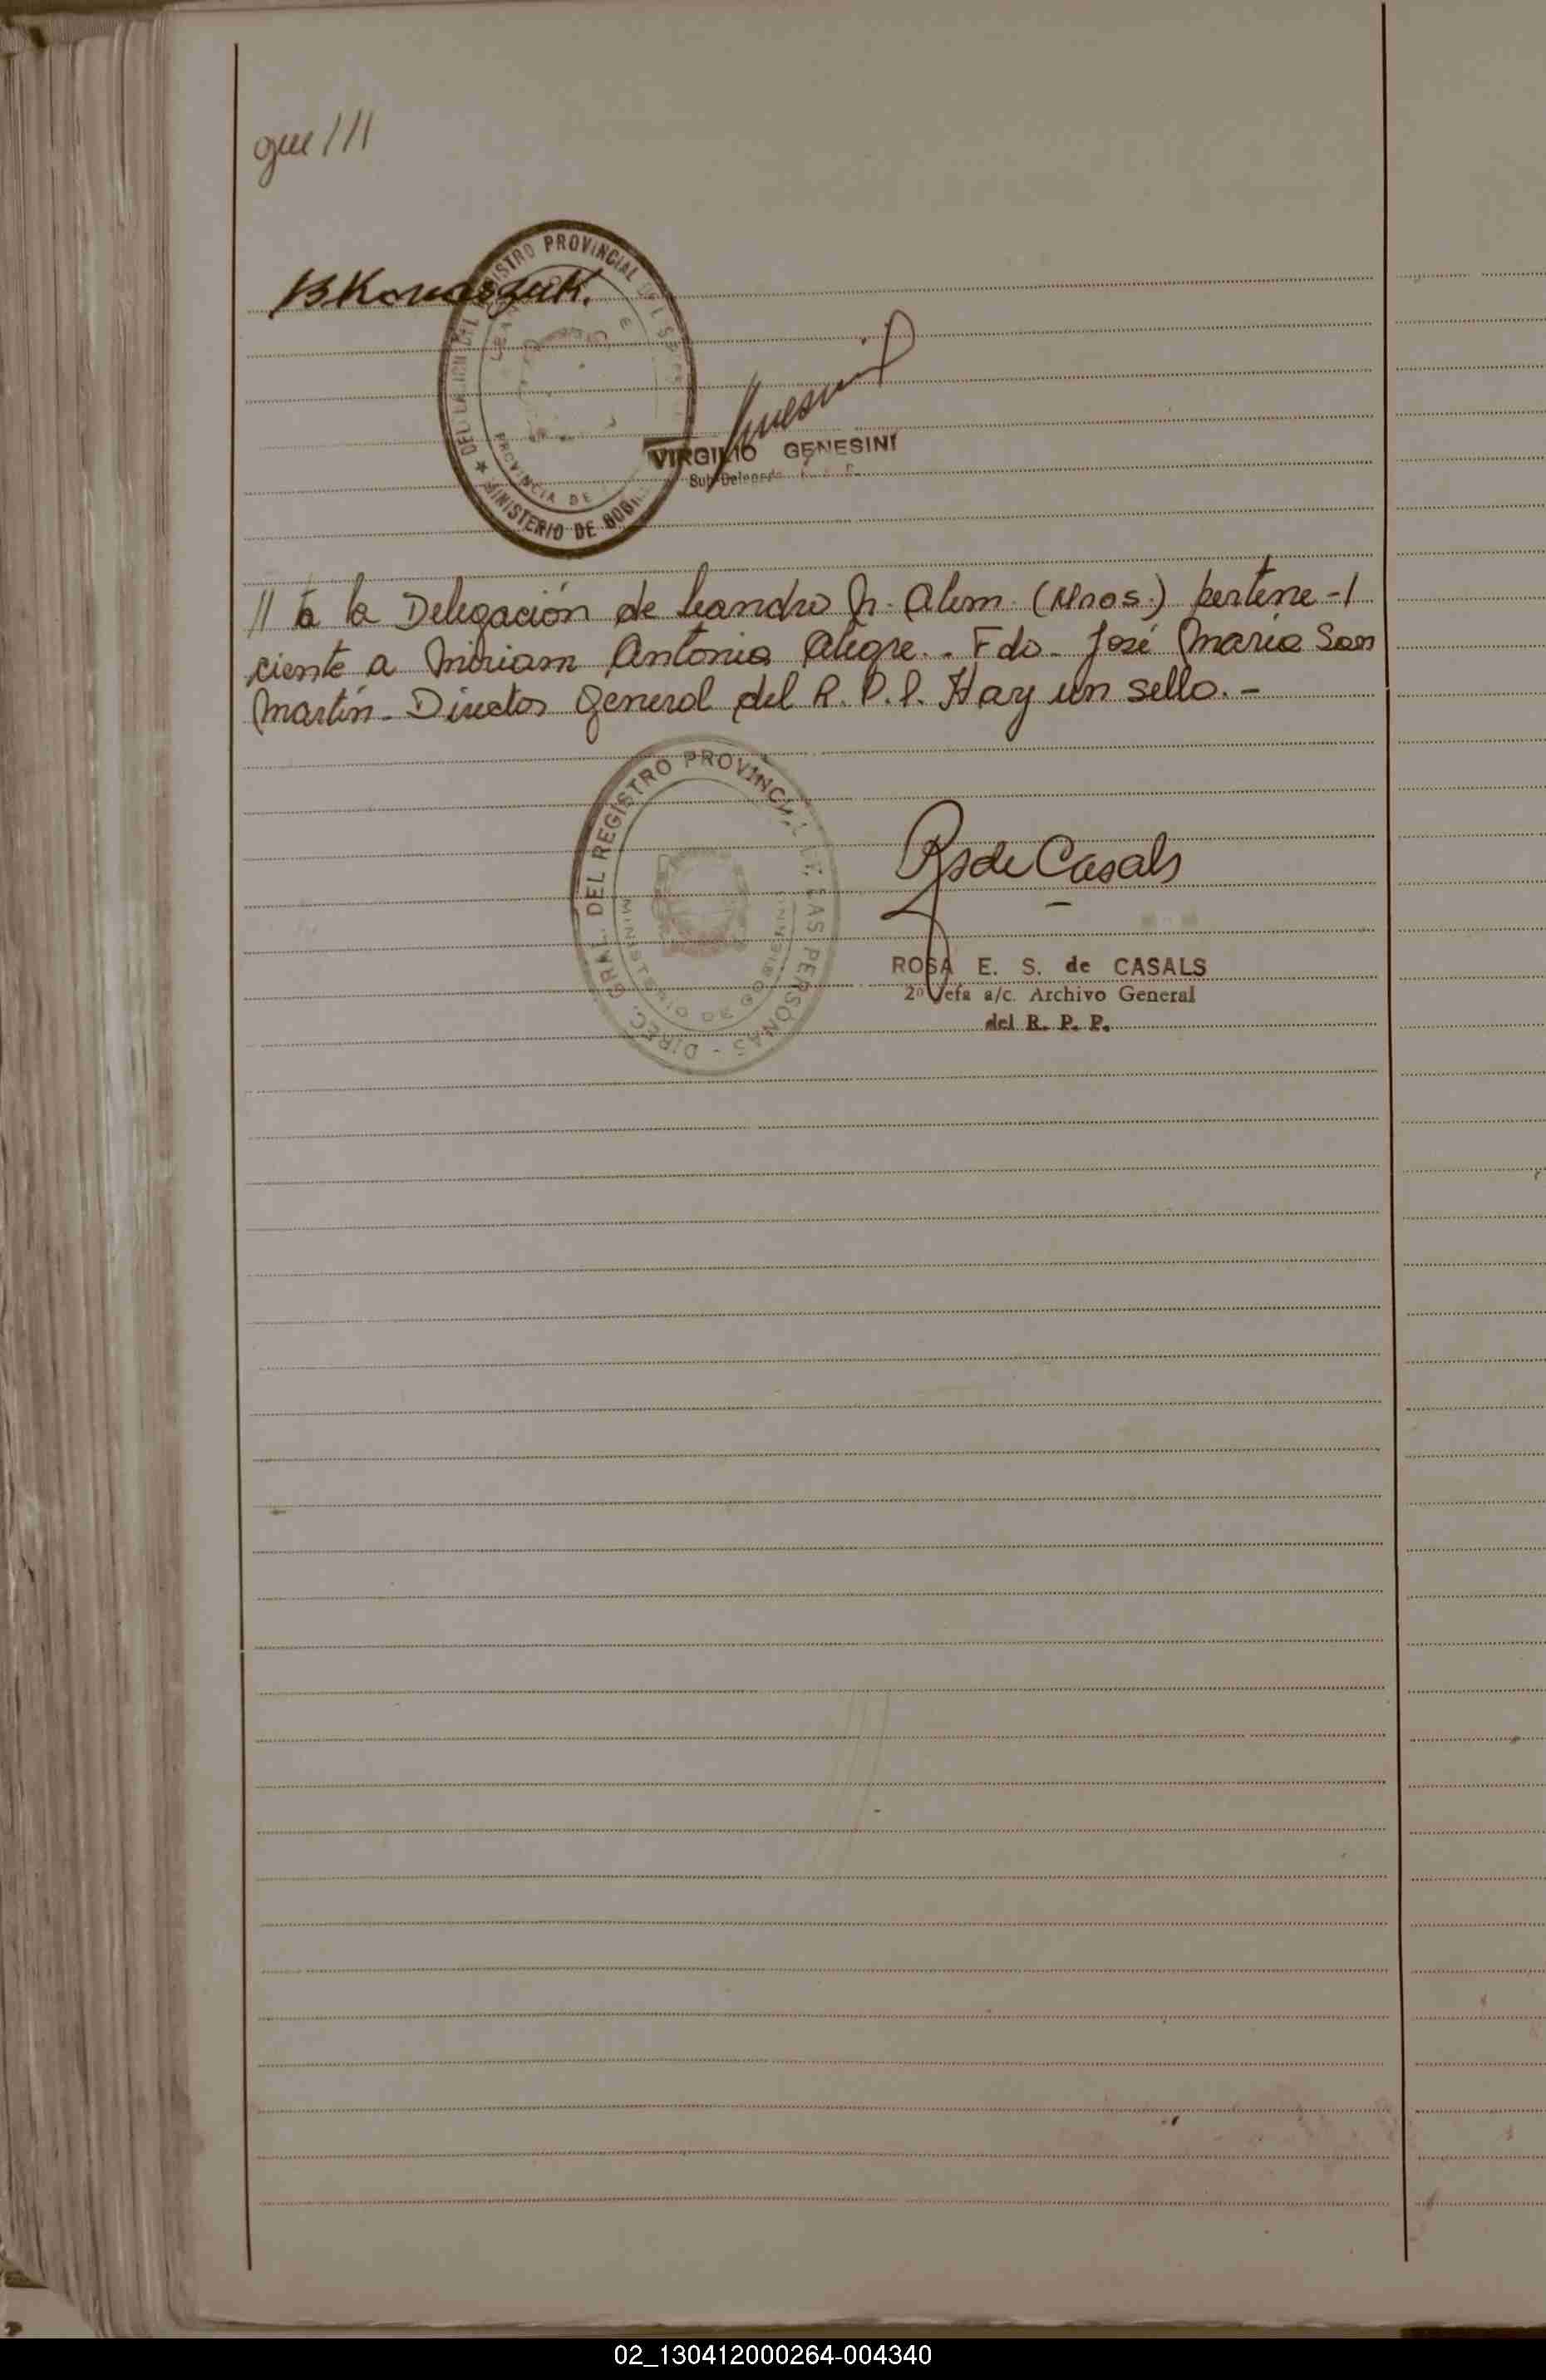 que ///
BKowaszuk.
DELEGACION DEL REGISTRO PROVINCIAL DE LAS PERSONAS
PROVINCIA DE
★ MINISTERIO DE GOBI
VIRGILIO GENESINI
Sub-Delegado
// ta la Delegación de Leandro N. Alem. (Mnos.) pertene-/
ciente a Miriam Antonia Alegre.- Fdo- José María San
Martín- Director General del R.P.P. Hay un sello.-
DIREC. GRAL. DEL REGISTRO PROVINCIAL DE LAS PERSONAS -
MINISTERIO DE GOBIERNO
RS de Casals
ROSA E. S. de CASALS
2º Jefa a/c. Archivo General
del R. P. P.
02_130412000264-004340